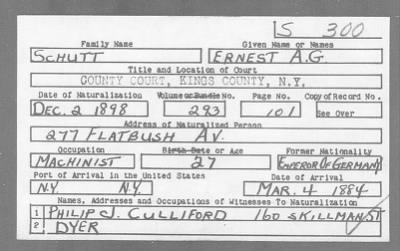 S 300
Family Name Given Name or Names
SCHUTT ERNEST A.G.
Title and Location of Court
COUNTY COURT, KINGS COUNTY, N.Y.
Date of Naturalization Volume or Bundle No. Page No. Copy of Record No.
DEC. 2 1898 293 101 See Over
Address of Naturalized Person
277 FLATBUSH AV.
Occupation Birth Date or Age Former Nationality
MACHINIST 27 EMPEROR OF GERMANY
Port of Arrival in the United States Date of Arrival
N.Y. N.Y. MAR. 4 1884
Names, Addresses and Occupations of Witnesses To Naturalization
1 PHILIP J. CULLIFORD 160 SKILLMAN ST
2 DYER